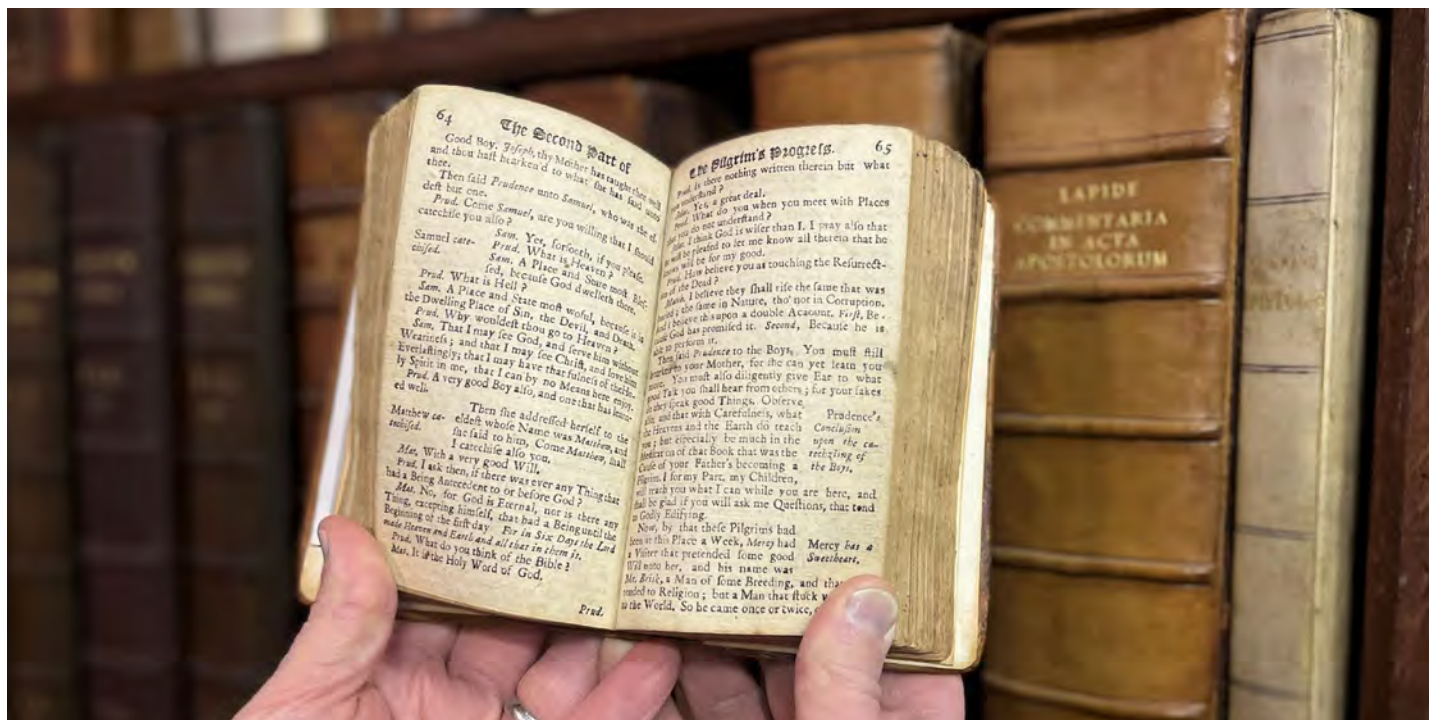 64
The Second Part of
Good Boy. Joſeph, thy Mother has taught thee well
and thou haſt hearken'd to what ſhe has ſaid unto
thee.
Then ſaid Prudence unto Samuel, who was the el-
deſt but one.
Prud. Come Samuel, are you willing that I ſhould
catechiſe you alſo?
Samuel cate-
chiſed.
Sam. Yes, forſooth, if you pleaſe.
Prud. What is Heaven?
Sam. A Place and State moſt Bleſ-
ſed, becauſe God dwelleth there.
Prud. What is Hell?
Sam. A Place and State moſt woful, becauſe it is
the Dwelling Place of Sin, the Devil, and Death.
Prud. Why wouldeſt thou go to Heaven?
Sam. That I may ſee God, and ſerve him without
Wearineſs; and that I may ſee Chriſt, and love him
Everlaſtingly; that I may have that fulneſs of the Ho-
ly Spirit in me, that I can by no Means here enjoy.
Prud. A very good Boy alſo, and one that has learn-
ed well.
Matthew ca-
techiſed.
Then ſhe addreſſed herſelf to the
eldeſt whoſe Name was Matthew, and
ſhe ſaid to him, Come Matthew, ſhall
I catechiſe alſo you.
Mat. With a very good Will.
Prud. I ask then, if there was ever any Thing that
had a Being Antecedent to or before God?
Mat. No, for God is Eternal, nor is there any
Thing, excepting himſelf, that had a Being until the
Beginning of the firſt day. For in Six Days the Lord
made Heaven and Earth and all that in them is.
Prud. What do you think of the Bible?
Mat. It is the Holy Word of God.
Prud.
65
The Pilgrim's Progreſs.
Prud. Is there nothing written therein but what
you underſtand?
Mat. Yes, a great deal.
Prud. What do you when you meet with Places
that you do not underſtand?
Mat. I think God is wiſer than I. I pray alſo that
he will be pleaſed to let me know all therein that he
knows will be for my good.
Prud. How believe you as touching the Reſurrect-
ion of the Dead?
Matth. I believe they ſhall riſe the ſame that was
buried; the ſame in Nature, tho' not in Corruption.
And I believe this upon a double Account. Firſt, Be-
cauſe God has promiſed it. Second, Becauſe he is
able to perform it.
Then ſaid Prudence to the Boys, You muſt ſtill
hearken to your Mother, for ſhe can yet learn you
more. You muſt alſo diligently give Ear to what
good Talk you ſhall hear from others; for your ſakes
do they ſpeak good Things. Obſerve
alſo and that with Carefulneſs, what
the Heavens and the Earth do teach
you; but eſpecially be much in the
Meditation of that Book that was the
Cauſe of your Father's becoming a
Pilgrim. I for my Part, my Children,
Prudence's
Concluſion
upon the ca-
techiſing of
the Boys.
will teach you what I can while you are here, and
ſhall be glad if you will ask me Queſtions, that tend
to Godly Edifying.
Now, by that theſe Pilgrims had
been at this Place a Week, Mercy had
a Viſiter that pretended ſome good
Will unto her, and his name was
Mercy has a
Sweetheart.
Mr. Brisk, a Man of ſome Breeding, and that
tended to Religion; but a Man that ſtuck
to the World. So he came once or twice,
LAPIDE
COMMENTARIA
IN ACTA
APOSTOLORUM